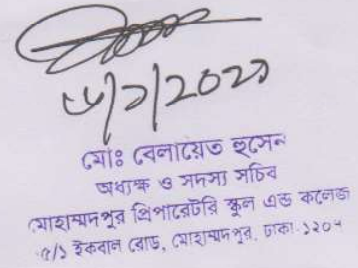 মোঃ বেলায়েত হুসেন
অধ্যক্ষ ও সদস্য সচিব
মোহাম্মদপুর প্রিপারেটরি স্কুল এন্ড কলেজ
৩/১ ইকবাল রোড, মোহাম্মদপুর, ঢাকা-১২০৭